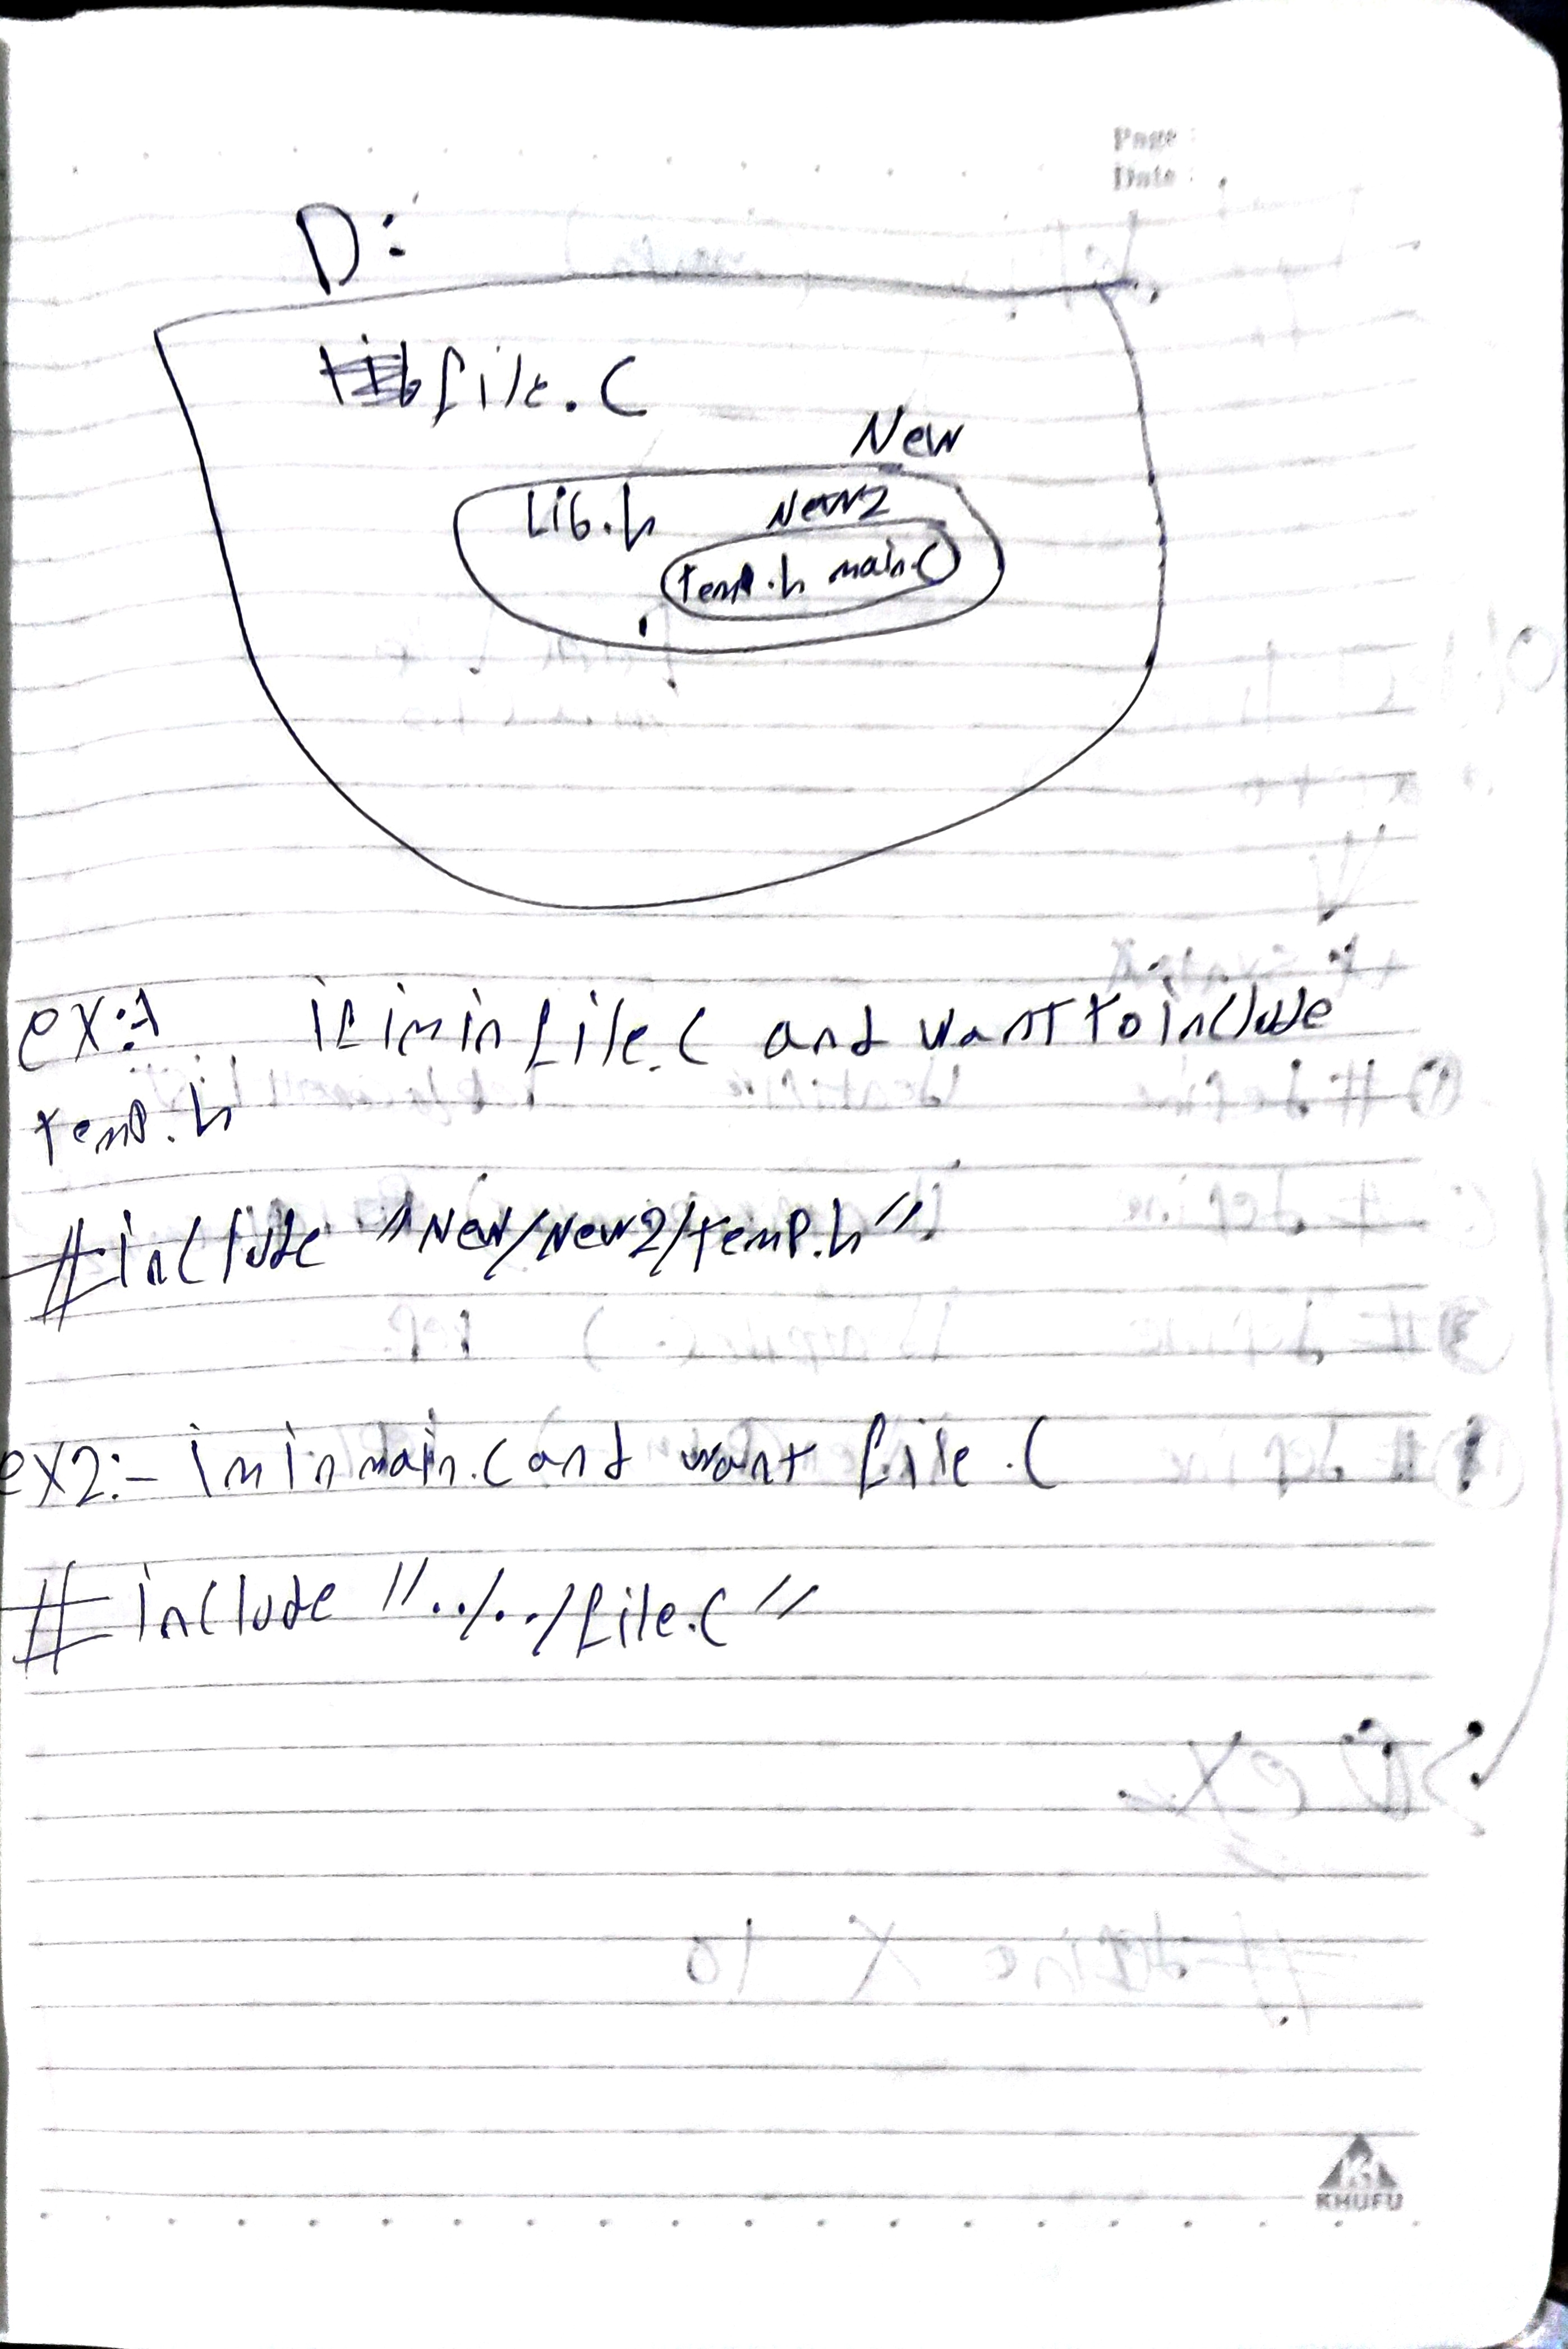 Page :
Date :
D:
file.c
New
Lib.h New2
temp.h main.c
ex:1 if im in file.c and want to include
temp.h
#include "New/New2/temp.h"
ex2:- im in main.c and want file.c
# include "../../file.c"
KHUFU